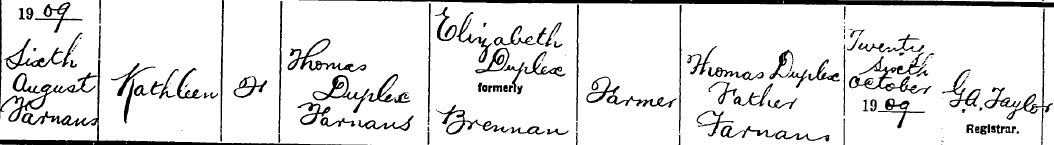 1909
Sixth
August
Farnans
Kathleen
F
Thomas
Duplex
Farnans
Elizabeth
Duplex
formerly
Brennan
Farmer
Thomas Duplex
Father
Farnans
Twenty
sixth
October
1909
G.A. Taylor
Registrar.